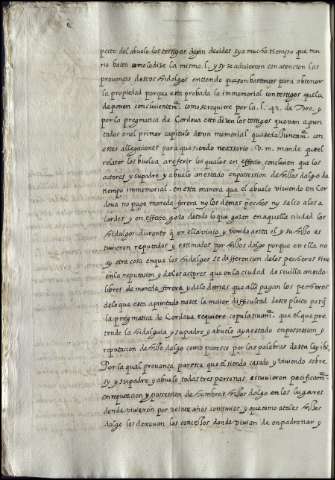 pecto del abuelo los testigos dejan decidas y ya mucho tiempo que mu
rio baste como lo dize la misma l. y sy se advierten con atencion las
provanças destos hidalgos entiendo que son bastantes para obtener
la propiedad porque esta probada la immemorial con testigos que la
deponen concluientem.te como se requiere por la l. 41. de Toro, y
por la pregmatica de Cordova estos dizen los testigos que van apun
tados en el primer capitulo de un memorial que se da juntam.te con
estas allegaciones para que siendo necessario. V. m. mande que el
relator los buelva a referir los quales en effecto, concluyen que los
actores y su padre, y abuelo an estado en possession de hijos dalgo de
tiempo immemorial. en esta manera que el abuelo viviendo en Cor
dova no pago moneda forera, ny los demas pechos ny salio a los a
lardes, y en effecto goço de todo lo que goçan en aquella ciudad los
hidalgos durante q. en ella vivio, y viendo esto el y su hijo se
tuvieron reputados, y estimados por hijos dalgo porque en ella no
ay otra cosa en que los hidalgos se differencien de los pecheros sino
en la reputacion y de los actores que en la ciudad de sevilla an sido
libres de moneda forera, y de lo demas que alli pagan los pecheros
de lo que esta apuntado nasce la maior difficultad deste pleito porq.
la pregmatica de Cordova requiere copulativam.te que el que pre
tende la hidalguia y su padre, y abuelo aya estado en possession, y
reputacion de hijo dalgo como parece por las palabras desta ley ibi
Por la qual provança parezca que el siendo casado, y viviendo sobre
sy y su padre, y abuelo todas tres personas estuvieron pacificam.te
en reputacion, y possession de hombres hijos dalgo en los lugares
donde vivieron por veinte años continuos, y que como a tales hijos
dalgo les dexaron los concejos donde vivian de enpadronar, y